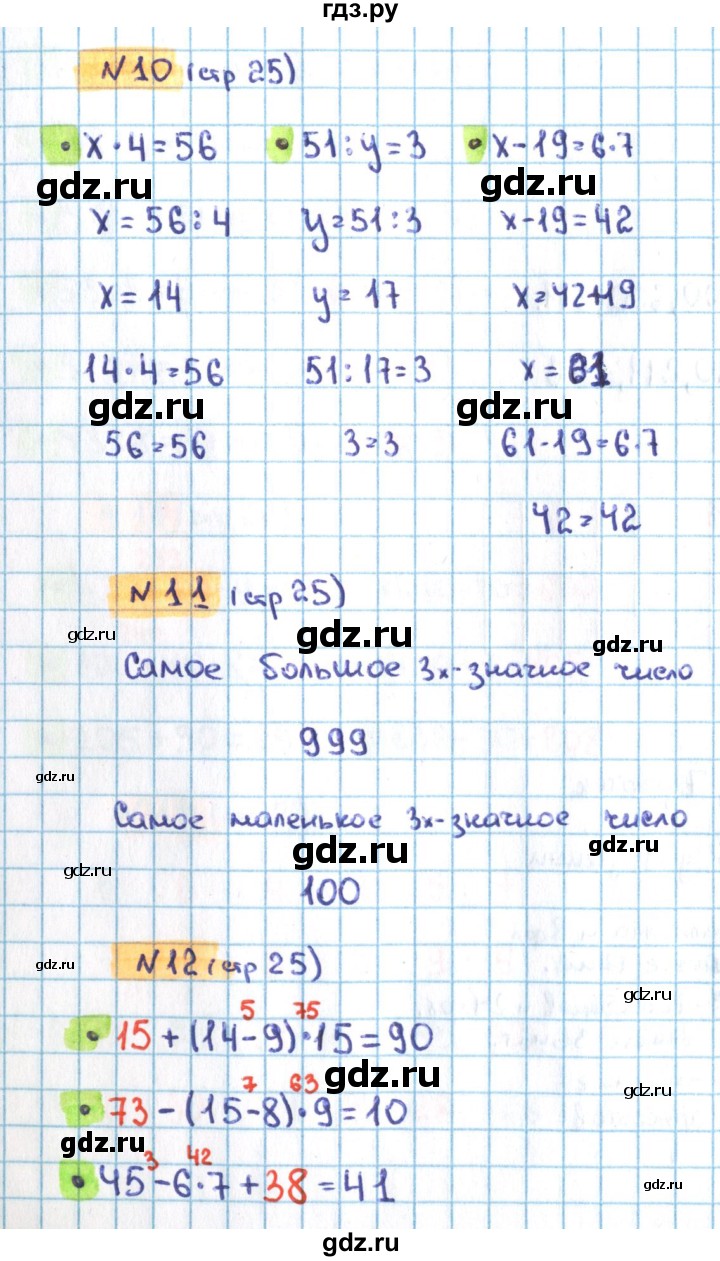 гдз.ру
N10 (стр 25)
• x·4=56 • 51:y=3 • x-19=6·7
gdz.ru gdz.ru
x=56:4 y=51:3 x-19=42
x=14 y=17 x=42+19
14·4=56 51:17=3 x=61
gdz.ru gdz.ru
56=56 3=3 61-19=6·7
42=42
N11 (стр 25)
gdz.ru gdz.ru gdz.ru
Самое большое 3х-значное число
999
gdz.ru
Самое маленькое 3х-значное число
gdz.ru gdz.ru
gdz.ru
100
N12 (стр 25)
gdz.ru
gdz.ru
5 75
• 15+(14-9)·15=90
gdz.ru
7 63
• 73-(15-8)·9=10
gdz.ru
gdz.ru
3 42
• 45-6·7+38=41
gdz.ru
gdz.ru